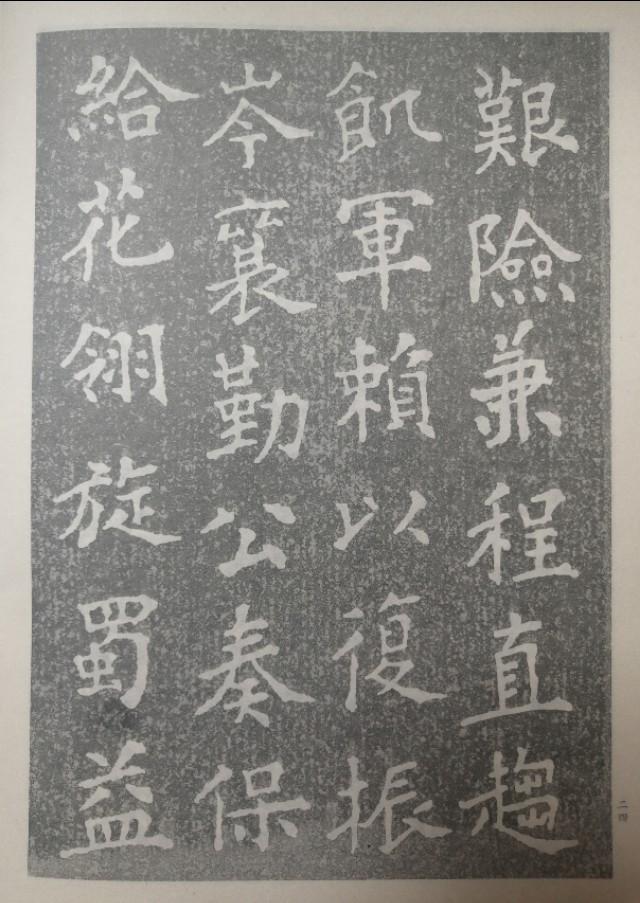 艱險兼程直趨
飢軍賴以復振
岑襄勤公奏保
給花翎旋蜀益
二四